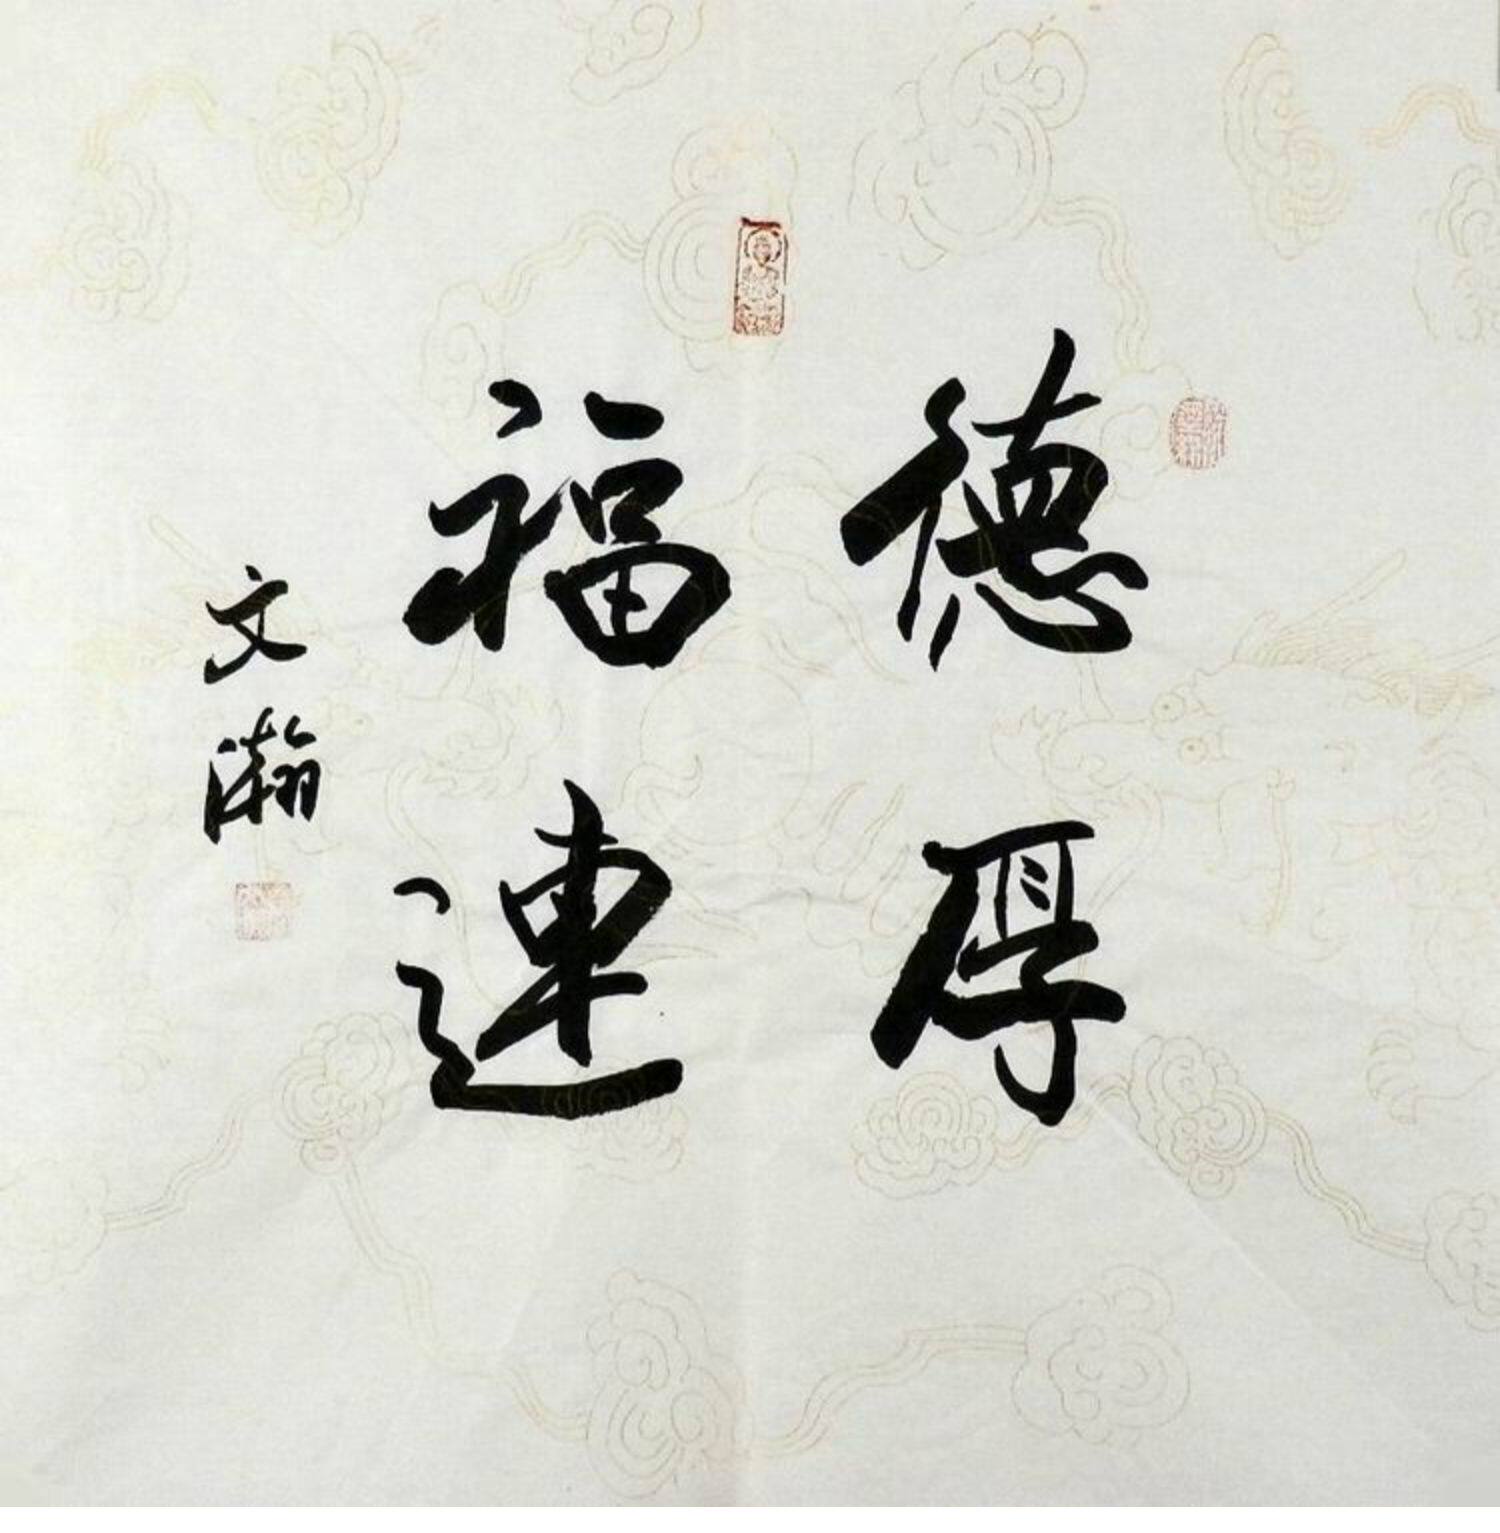 德厚
福連
文瀚